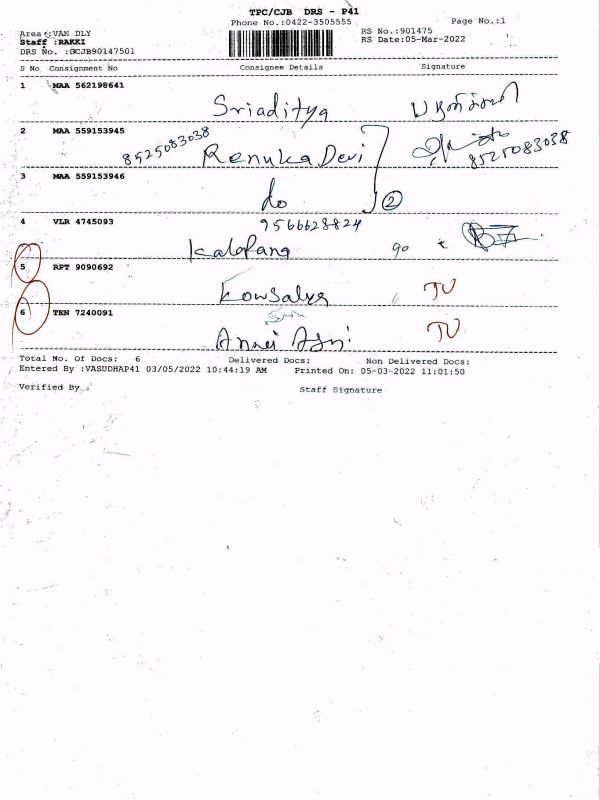 TPC/CJB DRS - P41
Phone No.:0422-3505555 Page No.:1
Area :VAN DLY RS No.:901475
Staff :RAKKI RS Date:05-Mar-2022
DRS No. :BCJB90147501
S No Consignment No Consignee Details Signature
1 MAA 562198641
Sriaditya
2 MAA 559153945
8525083038 Renuka Devi 8525083038
3 MAA 559153946
do 2
4 VLR 4745093 9566628824
90
5 RPT 9090692
Kowsalya TU
6 TEN 7240091
TU
Total No. Of Docs: 6 Delivered Docs: Non Delivered Docs:
Entered By :VASUDHAP41 03/05/2022 10:44:19 AM Printed On: 05-03-2022 11:01:50
Verified By Staff Signature